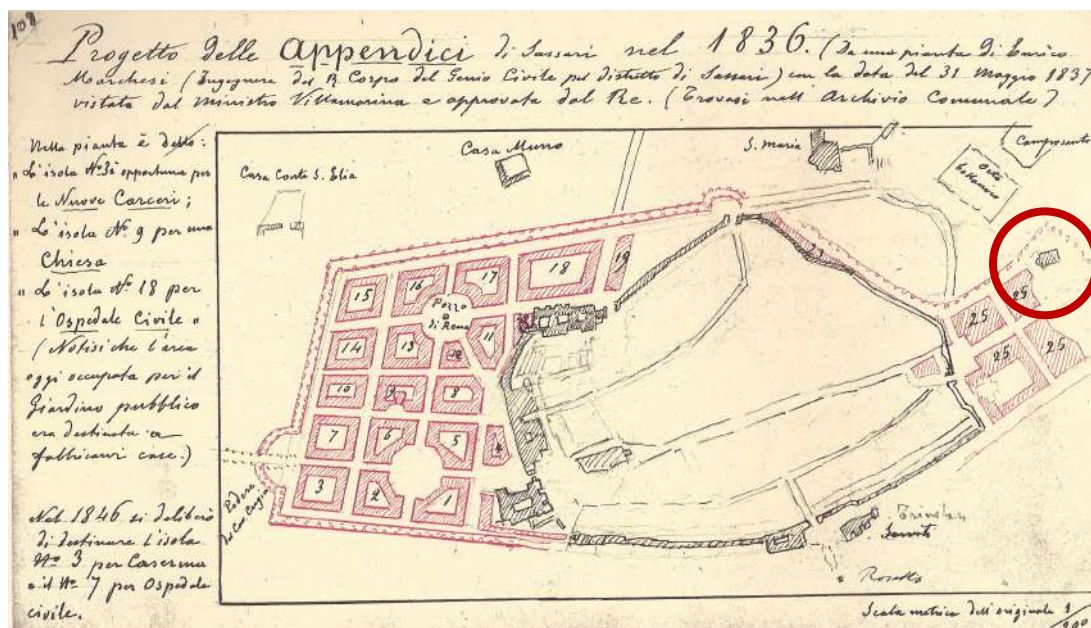 108
Progetto delle Appendici di Sassari nel 1836. (Da una pianta di Enrico
Marchesi (Ingegnere del R. Corpo del Genio Civile pel distretto di Sassari) con la data del 31 Maggio 1837
vistata dal Ministro Villamarina e approvata dal Re. (Trovasi nell'Archivio Comunale)
Nella pianta è detto:
" L'isola N° 3 è opportuna per
le Nuove Carceri;
" L'isola N° 9 per una
Chiesa
" L'isola N° 18 per
l'Ospedale Civile "
(Notisi che l'area
oggi occupata per il
Giardino pubblico
era destinata a
fabbricarvi case.)
Nel 1846 si deliberò
di destinare l'isola
N° 3 per Caserma
e il N° 7 per Ospedale
civile.
Casa Conte S. Elia
Casa Murro
S. Maria
Camposanto
Orto
botanico
15
16
17
18
19
Pozzo
di Rena
14
13
12
11
10
9
8
7
6
5
4
3
2
1
25
25
25
25
Podere
Servito
Rosello
Scala metrica dell'originale 1/